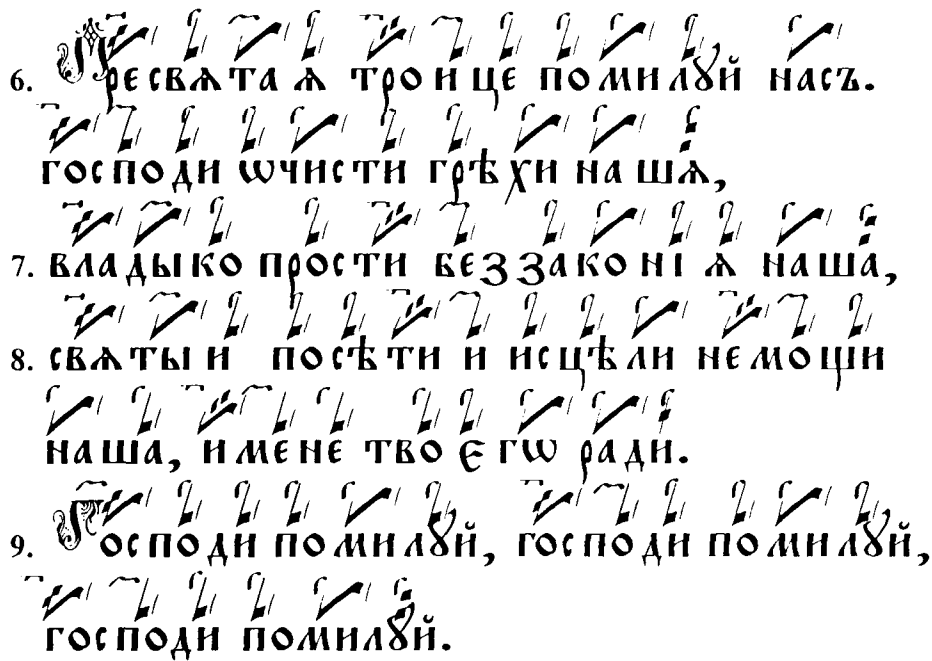 6. Пресвѧтаѧ троице помилꙋй насъ.
господи ѡчисти грѣхи нашѧ,
7. владыко прости беззаконіѧ наша,
8. свѧтыи посѣти и исцѣли немощи
наша, имене твоєгѡ ради.
9. Господи помилꙋй, господи помилꙋй,
господи помилꙋй.